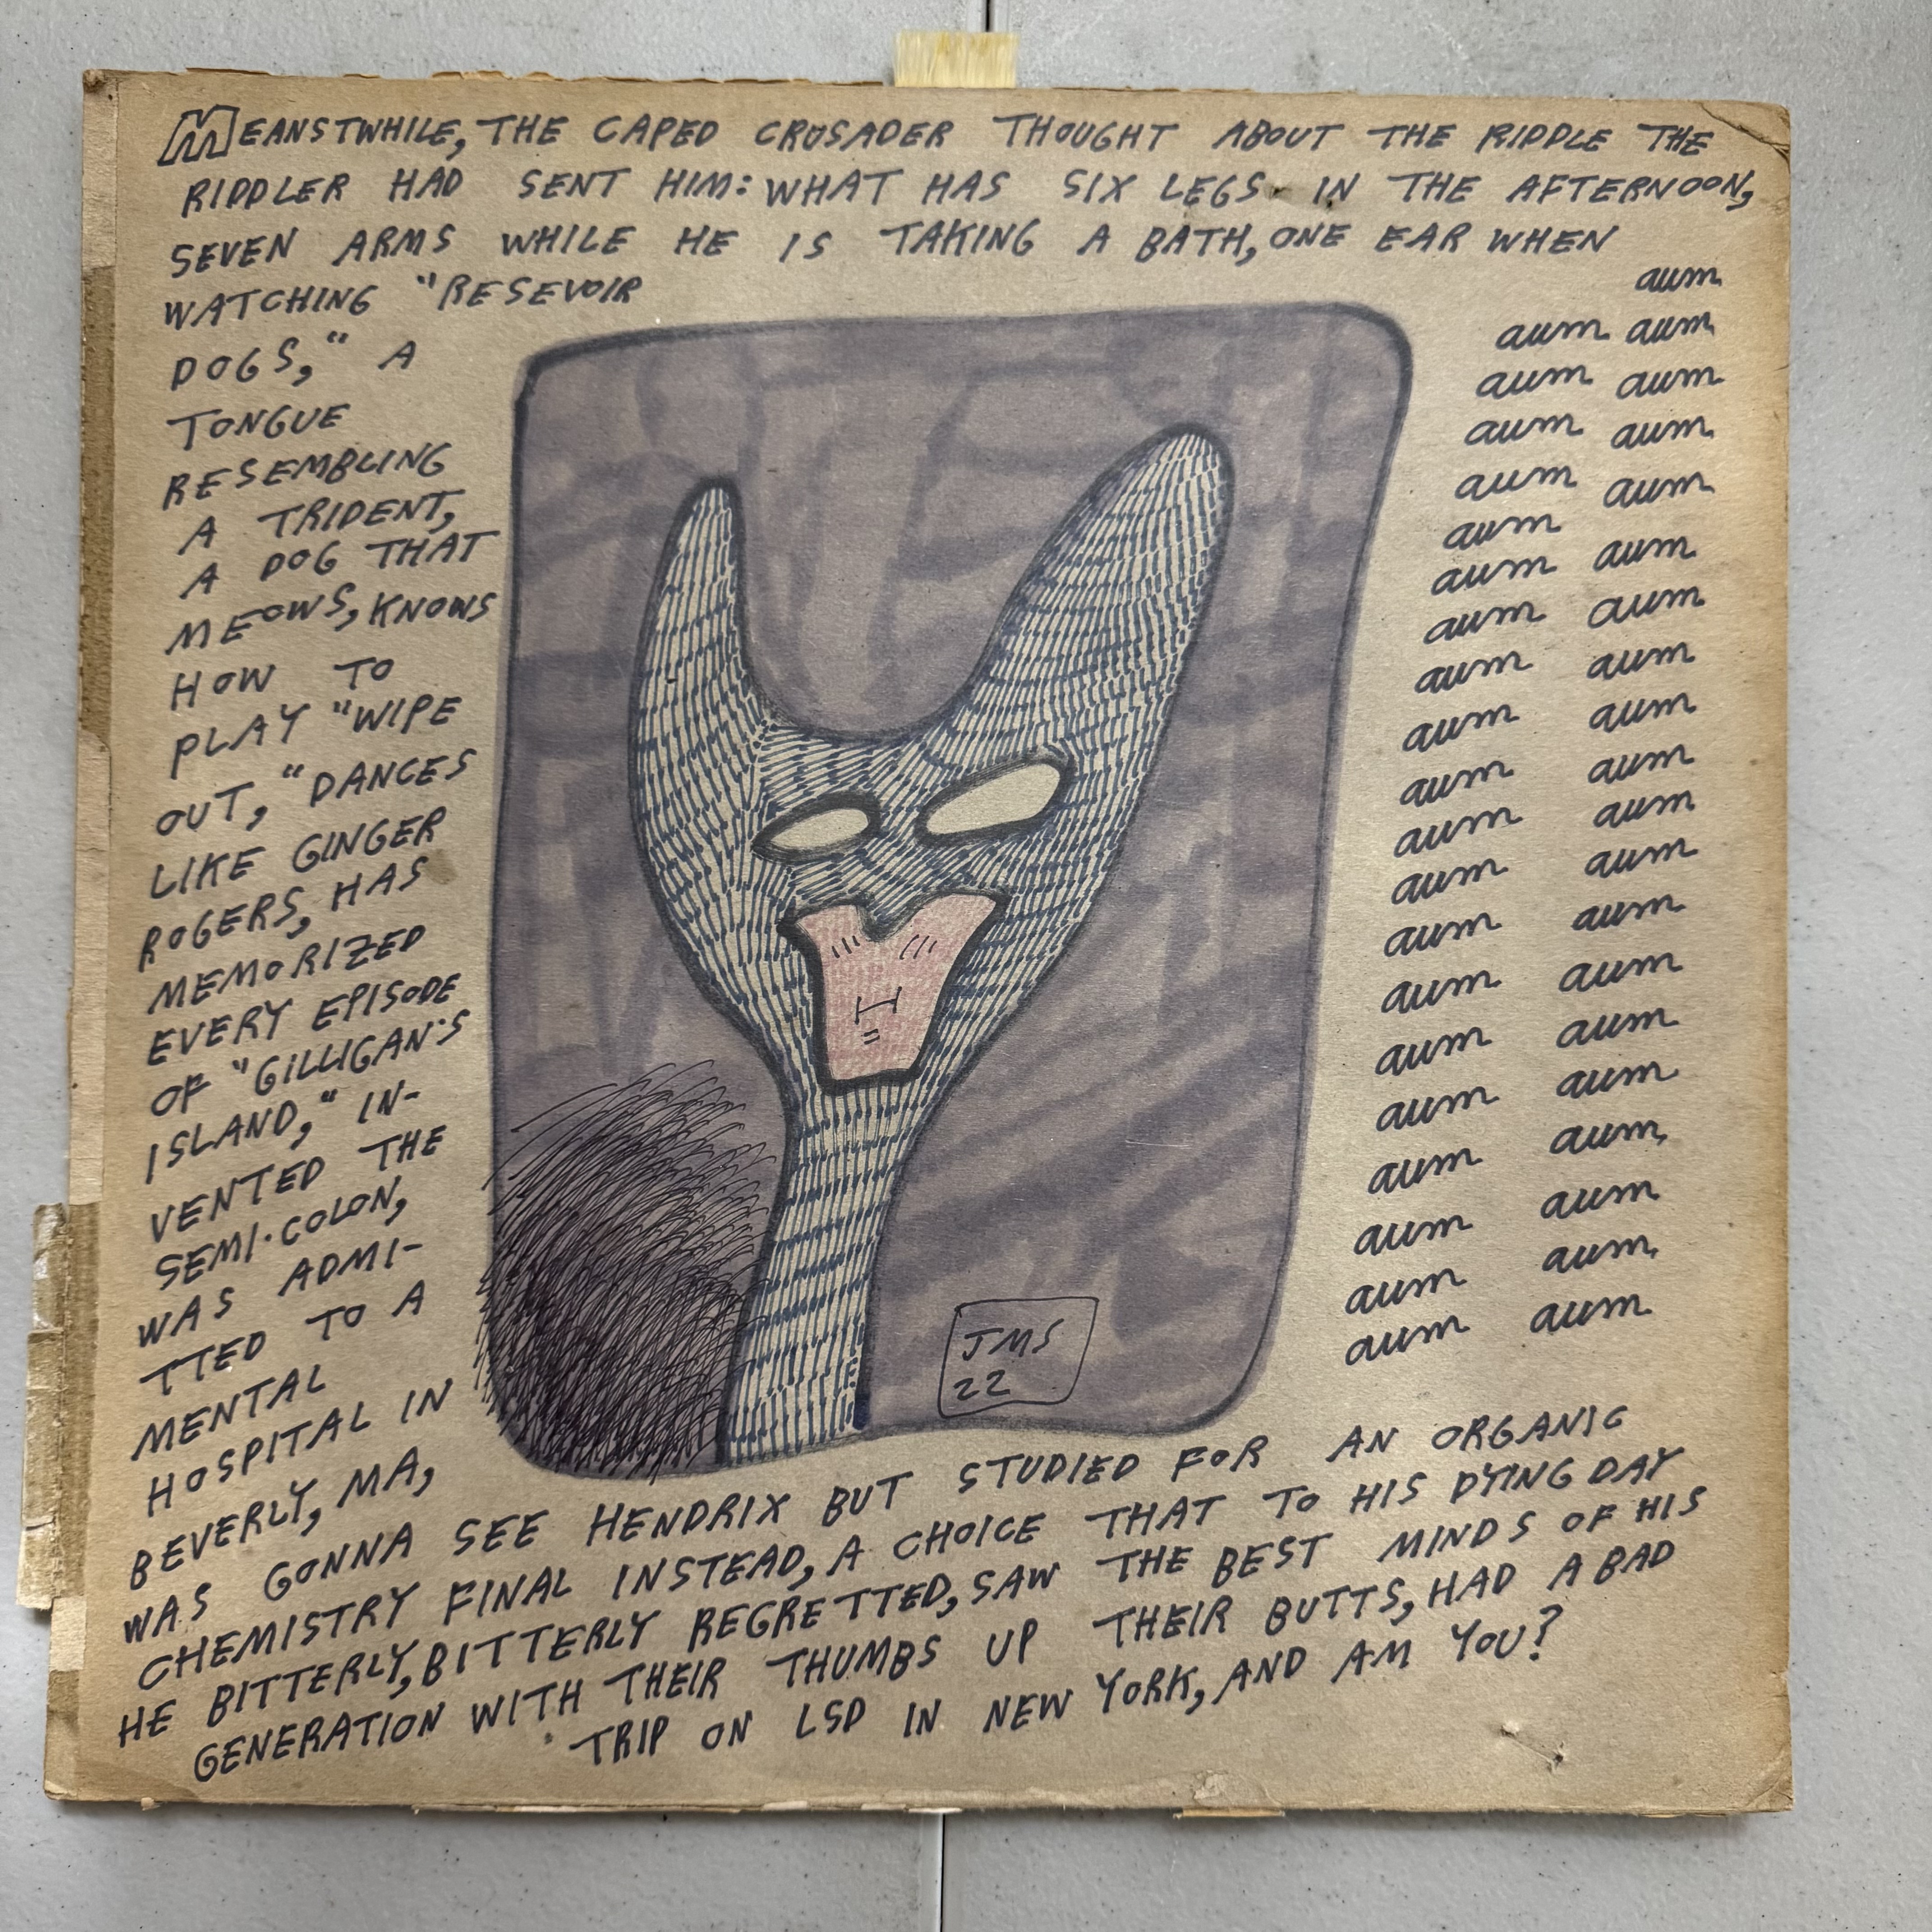 MEANSTWHILE, THE CAPED CRUSADER THOUGHT ABOUT THE RIDDLE THE
RIDDLER HAD SENT HIM: WHAT HAS SIX LEGS IN THE AFTERNOON,
SEVEN ARMS WHILE HE IS TAKING A BATH, ONE EAR WHEN
WATCHING "RESEVOIR
DOGS," A
TONGUE
RESEMBLING
A TRIDENT,
A DOG THAT
MEOWS, KNOWS
HOW TO
PLAY "WIPE
OUT," DANCES
LIKE GINGER
ROGERS, HAS
MEMORIZED
EVERY EPISODE
OF "GILLIGAN'S
ISLAND," IN-
VENTED THE
SEMI-COLON,
WAS ADMI-
TTED TO A
MENTAL
HOSPITAL IN
BEVERLY, MA,
WAS GONNA SEE HENDRIX BUT STUDIED FOR AN ORGANIC
CHEMISTRY FINAL INSTEAD, A CHOICE THAT TO HIS DYING DAY
HE BITTERLY, BITTERLY REGRETTED, SAW THE BEST MINDS OF HIS
GENERATION WITH THEIR THUMBS UP THEIR BUTTS, HAD A BAD
TRIP ON LSD IN NEW YORK, AND AM YOU?
aum
aum aum
aum aum
aum aum
aum aum
aum
aum aum
aum aum
aum aum
aum aum
aum aum
aum aum
aum aum
aum aum
aum aum
aum aum
aum aum
aum aum
aum aum
aum aum
aum aum
JMS
22